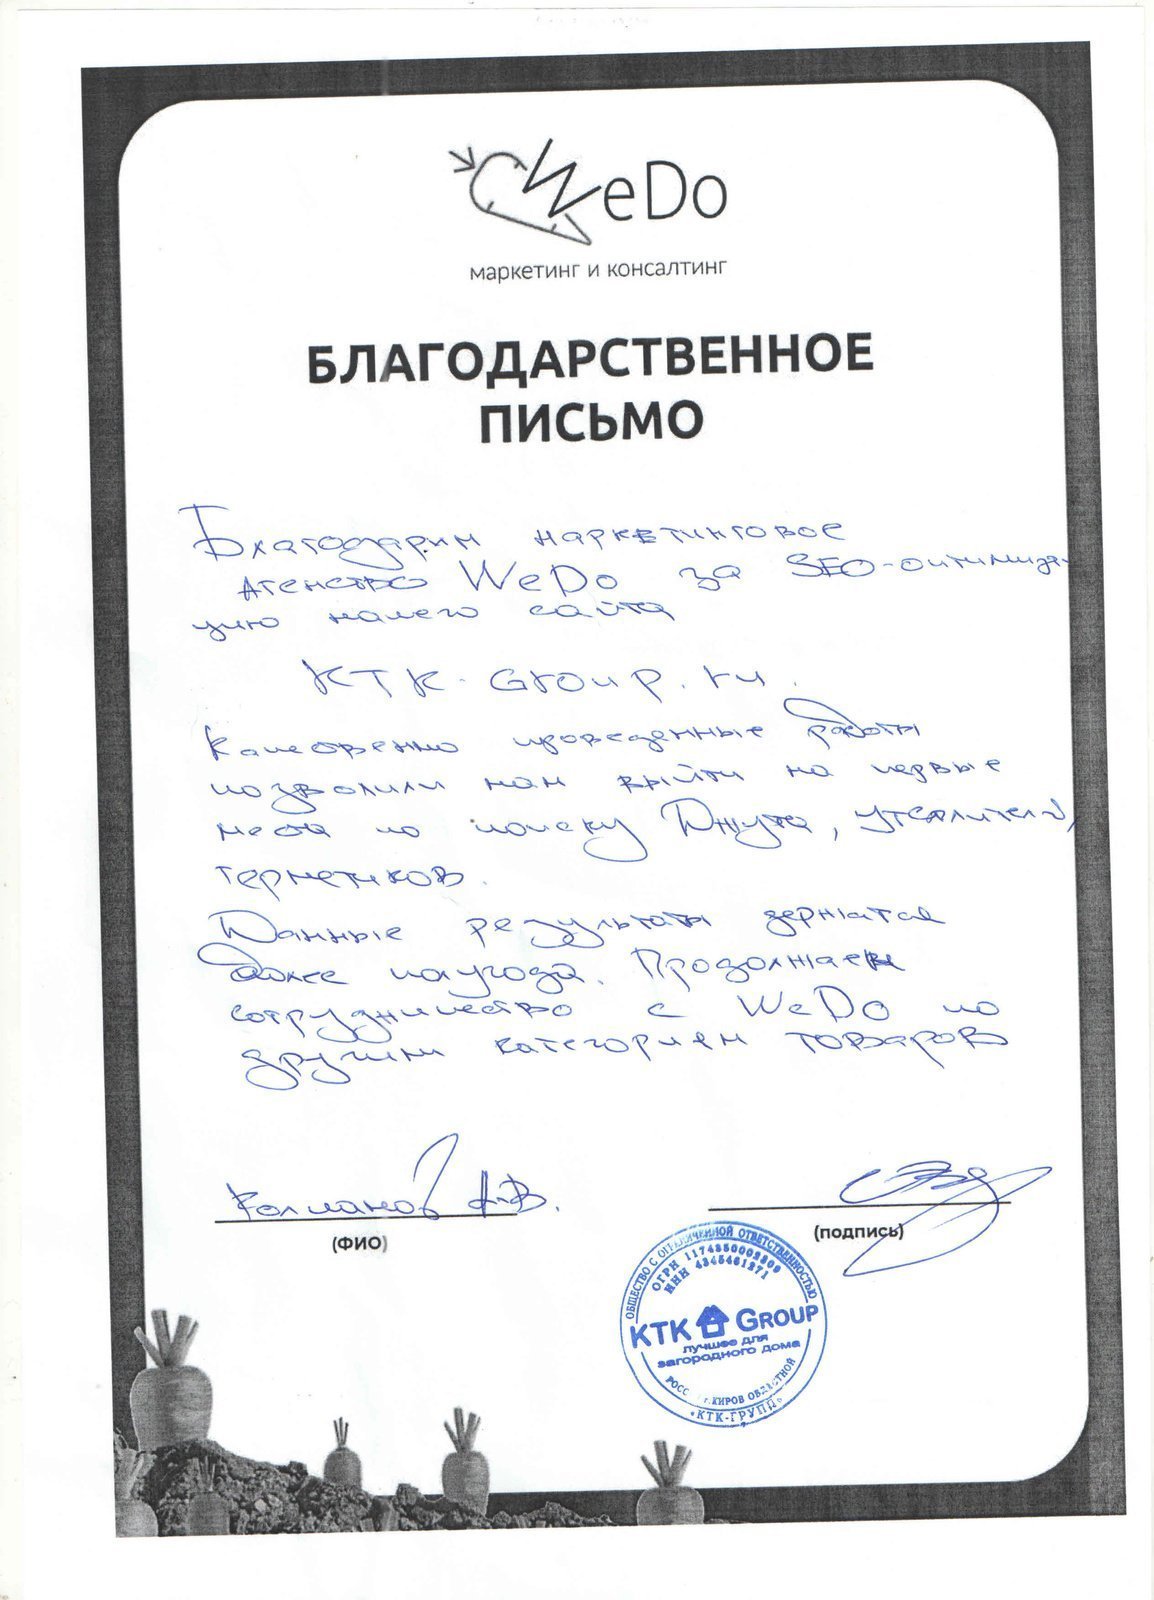 WeDo
маркетинг и консалтинг
БЛАГОДАРСТВЕННОЕ
ПИСЬМО
Благодарим маркетинговое
Агенство WeDo за SEO-оптимиза-
цию нашего сайта
KTK-Group.ru.
Качественно проведенные работы
позволили нам выйти на первые
места по поиску Джута, утеплителей,
герметиков.
Данные результаты держатся
более полугода. Продолжаем
сотрудничество с WeDo по
другим категориям товаров
Колчанов А.В.
(ФИО)
(подпись)
ОБЩЕСТВО С ОГРАНИЧЕННОЙ ОТВЕТСТВЕННОСТЬЮ
ОГРН
ИНН 4345461271
KTK GROUP
лучшее для
загородного дома
г. КИРОВ ОБЛАСТНОЙ
«КТК-ГРУПП»